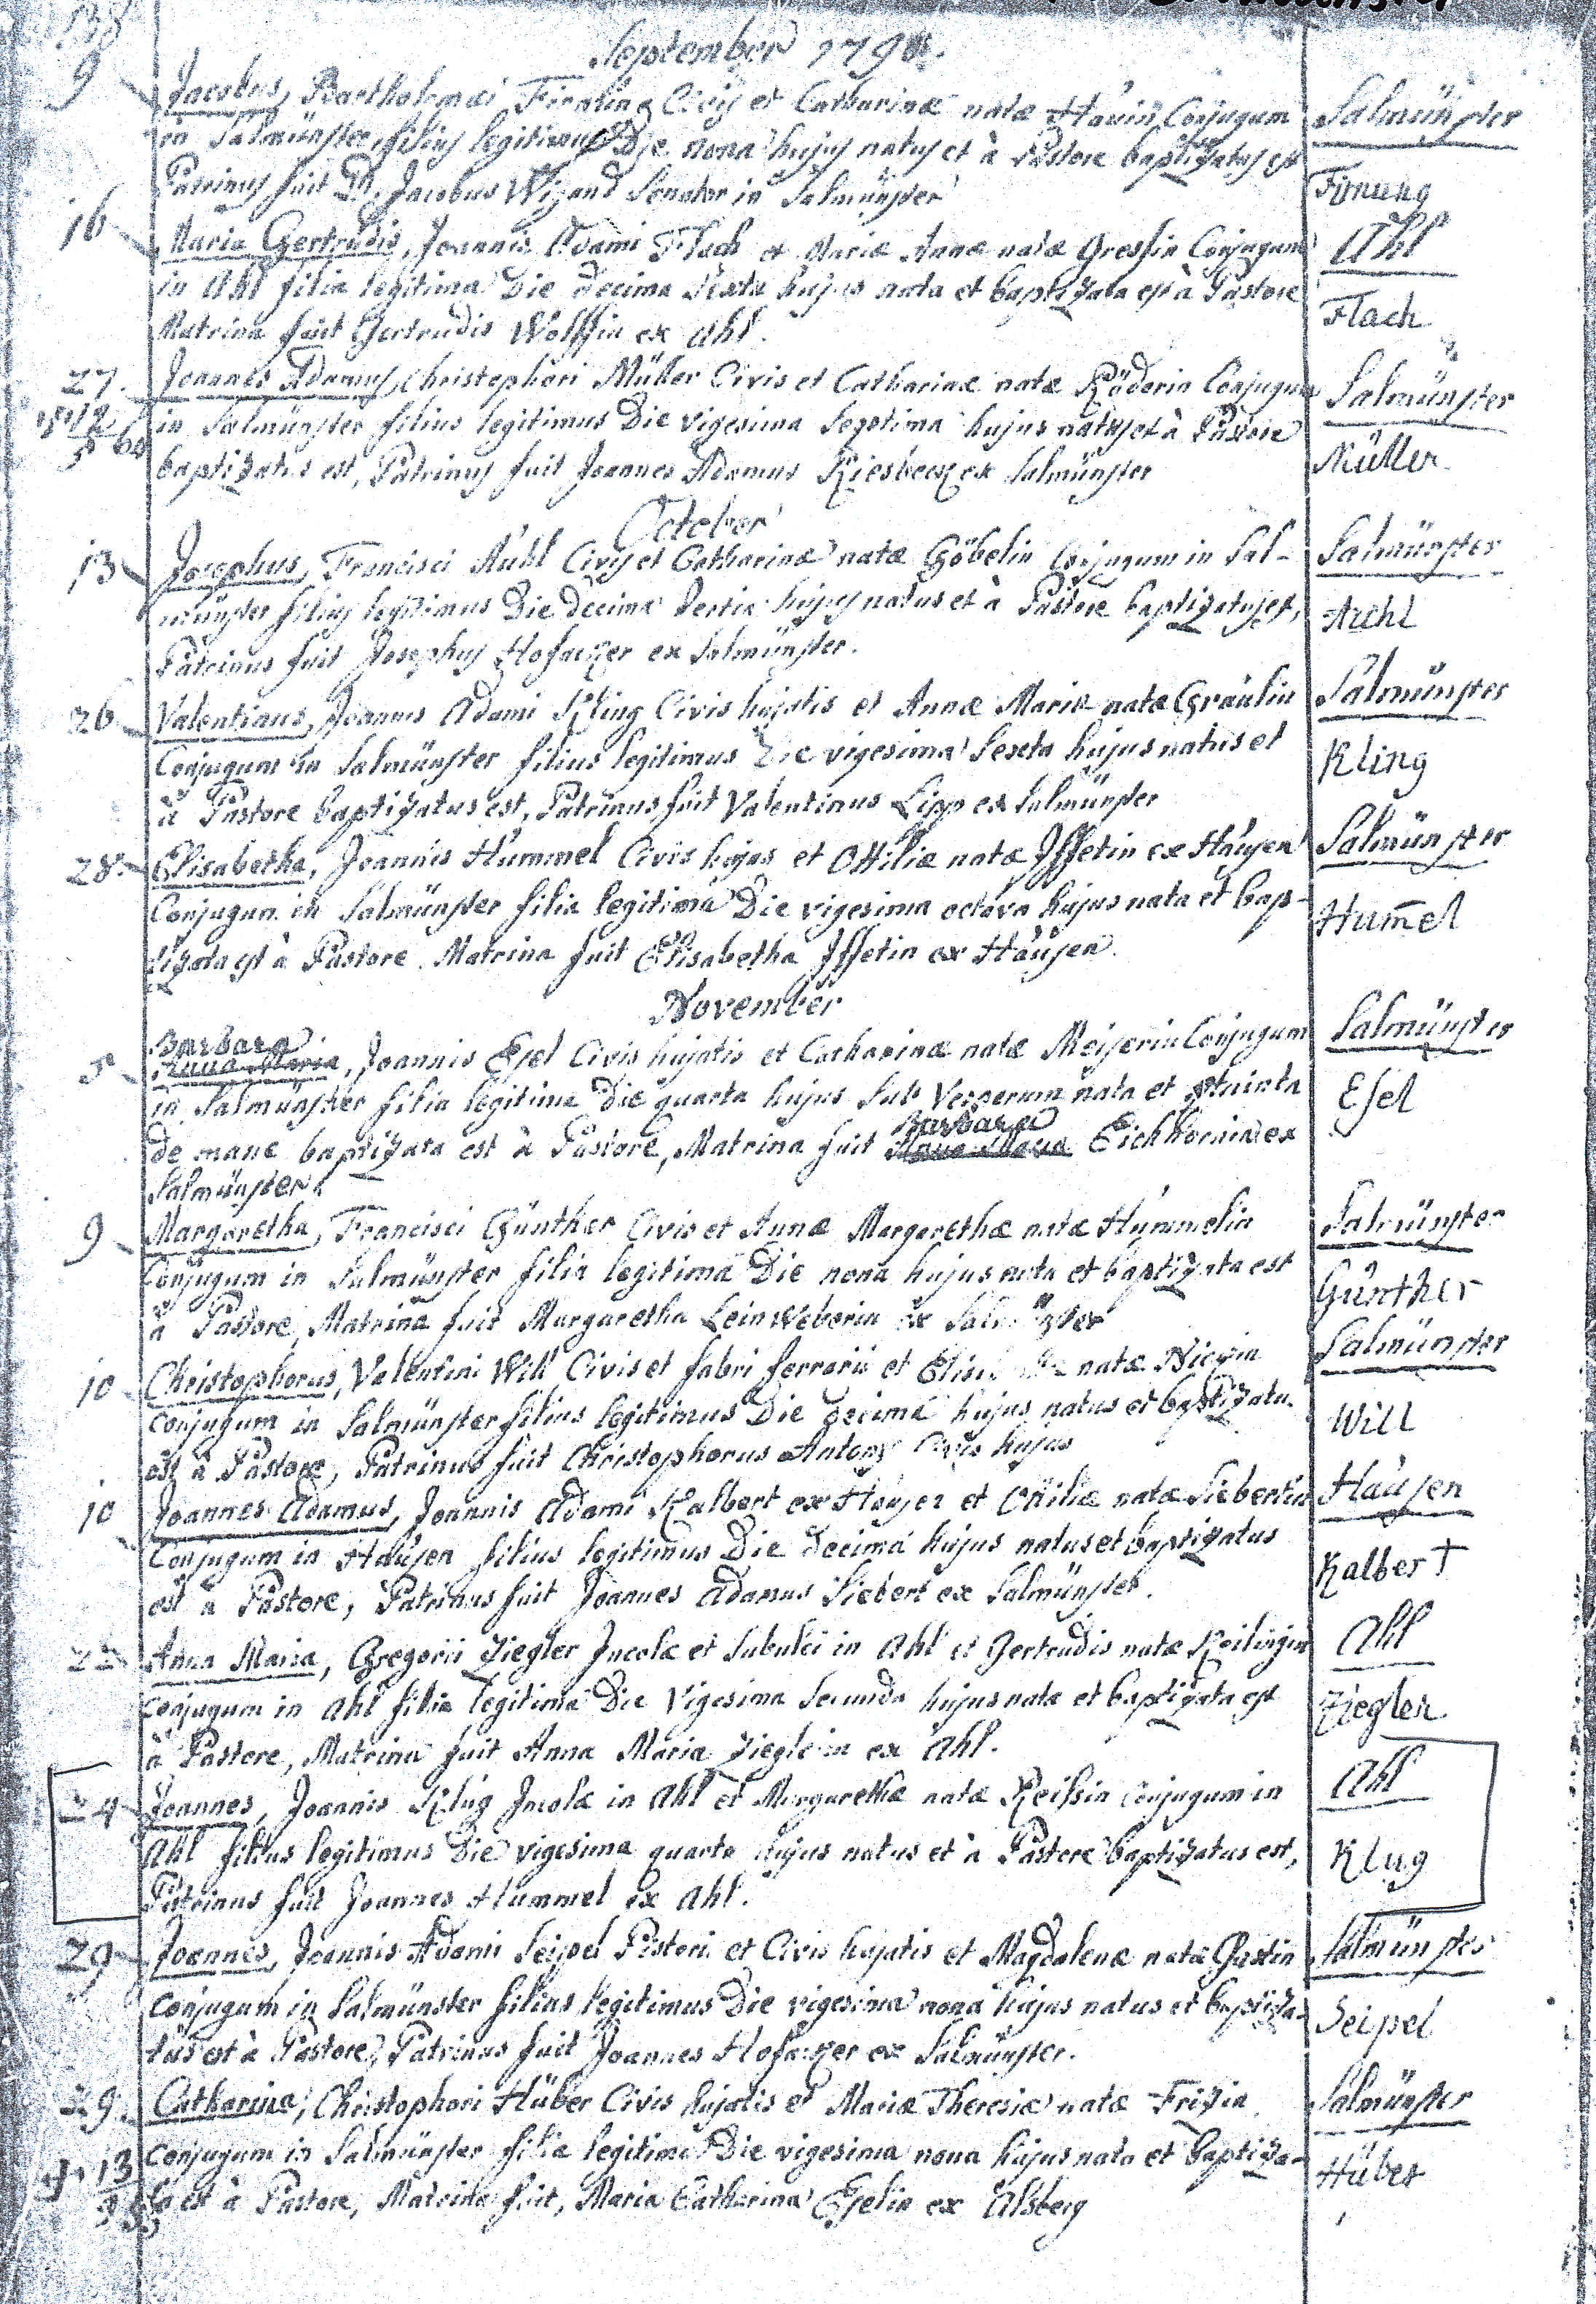 138
September 179
9 Jacobus, Bartholomæi Firnung Civis et Catharinæ natæ Haüin Conjugum Salmünster
in Salmünster filius legitimus Die nona hujus natus et à Pastore baptizatus est
Patrinus fuit D. Jacobus Wigand Senator in Salmünster Firnung
16 Maria Gertrudis, Joannis Adami Flach et Mariæ Annæ natæ Gressin Conjugum Ahl
in Ahl filia legitima Die decima sexta hujus nata et baptizata est à Pastore
Matrina fuit Gertrudis Wolffin ex Ahl. Flach
27. Joannes Adamus, Christophori Müller Civis et Catharinæ natæ Röderin Conjugum Salmünster
in Salmünster filius legitimus Die vigesima Septima hujus natus et à Pastore
baptizatus est, Patrinus fuit Joannes Adamus Kiesbeck ex Salmünster Müller
October
13 Josephus, Francisci Auhl Civis et Catharinæ natæ Göbelin Conjugum in Sal- Salmünster
münster filius legitimus Die decima tertia hujus natus et à Pastore baptizatus est,
Patrinus fuit Josephus Hofacker ex Salmünster. Auhl
26 Valentinus, Joannis Adami Kling Civis hujatis et Annæ Mariæ natæ Gräulin Salmünster
Conjugum in Salmünster filius legitimus Die vigesima Sexta hujus natus et Kling
à Pastore baptizatus est, Patrinus fuit Valentinus Lipp ex Salmünster
28. Elisabetha, Joannis Hummel Civis hujas et Ottiliæ natæ Iffletin ex Hausen Salmünster
Conjugum in Salmünster filia legitima Die vigesima octava hujus nata et bap-
tizata est à Pastore. Matrina fuit Elisabetha Iffletin ex Hausen. Hum̄el
November
Barbara
5 Anna Maria, Joannis Esel Civis hujatis et Catharinæ natæ Meiserin Conjugum Salmünster
in Salmünster filia legitima Die quarta hujus sub Vesperum nata et quinta Esel
Barbara
de mane baptizata est à Pastore, Matrina fuit Anna Maria Eichhornin ex
Salmünster.
9 Margaretha, Francisci Günther Civis et Annæ Margarethæ natæ Hummelin Salmünster
Conjugum in Salmünster filia legitima Die nona hujus nata et baptizata est
à Pastore, Matrina fuit Margaretha Leinweberin ex Salmünster Günther
10 Christophorus, Valentini Will Civis et fabri ferrarii et natæ Salmünster
conjugum in Salmünster filius legitimus Die decima hujus natus et baptizatus
est à Pastore, Patrinus fuit Christophorus Antony Civis hujus Will
10 Joannes Adamus, Joannis Adami Kalbert ex Hausen et Ottiliæ natæ Siebertin Hausen
Conjugum in Hausen filius legitimus Die decima hujus natus et baptizatus
est à Pastore, Patrinus fuit Joannes Adamus Siebert ex Salmünster. Kalbert
22 Anna Maria, Gregorii Ziegler Incolæ et Subulci in Ahl et Gertrudis natæ Keilingin Ahl
conjugum in Ahl filia legitima Die Vigesima Secunda hujus nata et baptizata est
à Pastore, Matrina fuit Anna Maria Zieglerin ex Ahl. Ziegler
24 Joannes, Joannis Klug Incolæ in Ahl et Margarethæ natæ Reissin Conjugum in Ahl
Ahl filius legitimus Die vigesima quarta hujus natus et à Pastore baptizatus est,
Patrinus fuit Joannes Hummel ex Ahl. Klug
29 Joannes, Joannis Adami Seipel Pistoris et Civis hujatis et Magdalenæ natæ Salmünster
conjugum in Salmünster filius legitimus Die vigesima nona hujus natus et baptiza-
tus est à Pastore, Patrinus fuit Joannes Hofacker ex Salmünster. Seipel
29. Catharina, Christophori Hüber Civis hujatis et Mariæ Theresiæ natæ Frizin Salmünster
conjugum in Salmünster filia legitima Die vigesima nona hujus nata et baptiza-
ta est à Pastore, Matrina fuit, Maria Catharina Eselin ex Alsberg Hüber